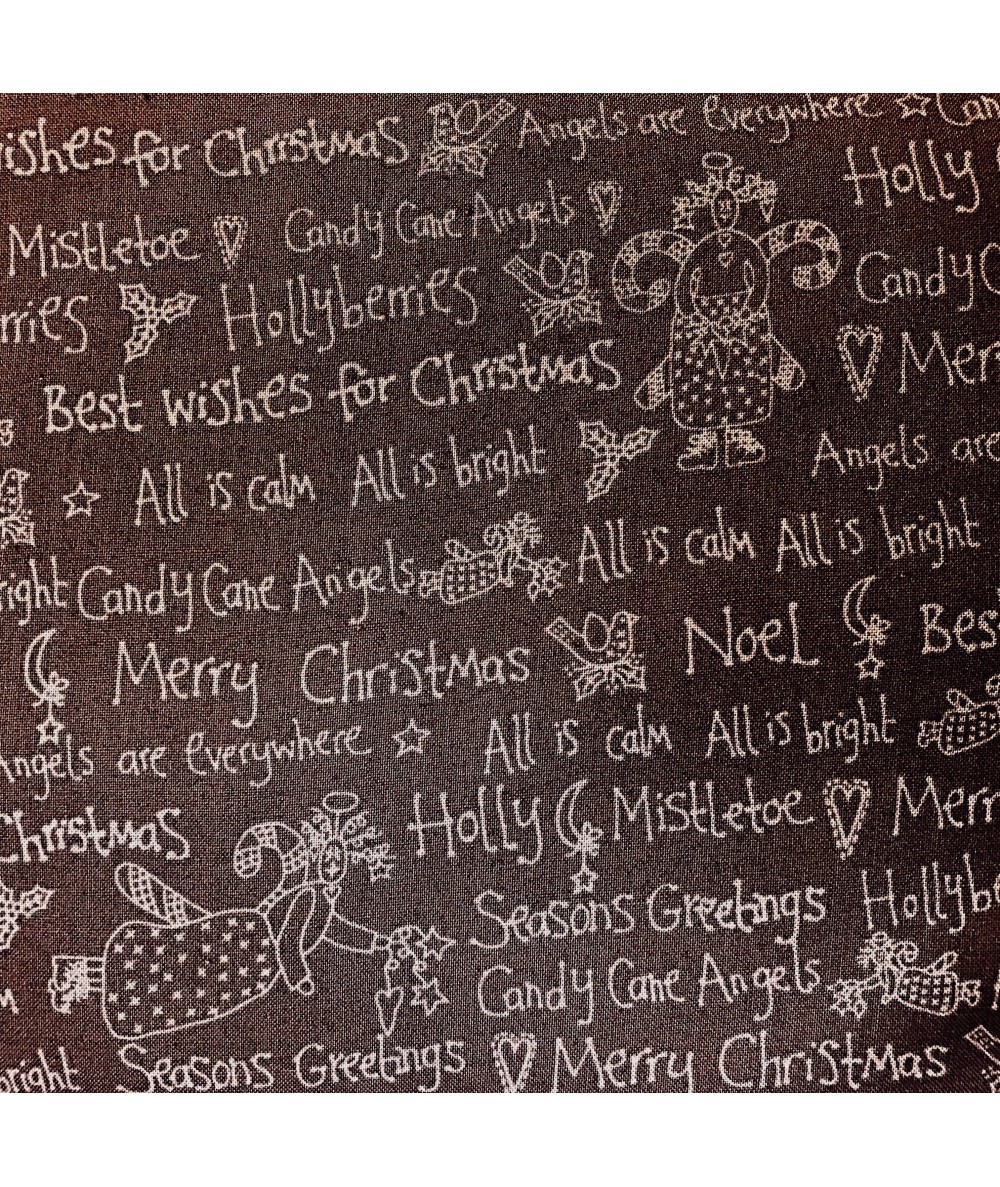 ishes for Christmas Angels are everywhere Can
Holly
Mistletoe Candy Cane Angels
rries Hollyberries Candy C
Best wishes for Christmas Merr
All is calm All is bright Angels are
right Candy Cane Angels All is calm All is bright
Merry Christmas Noel Bes
Angels are everywhere All is calm All is bright
Christmas Holly Mistletoe Merr
Seasons Greetings Hollybe
m Candy Cane Angels
bright Seasons Greetings Merry Christmas